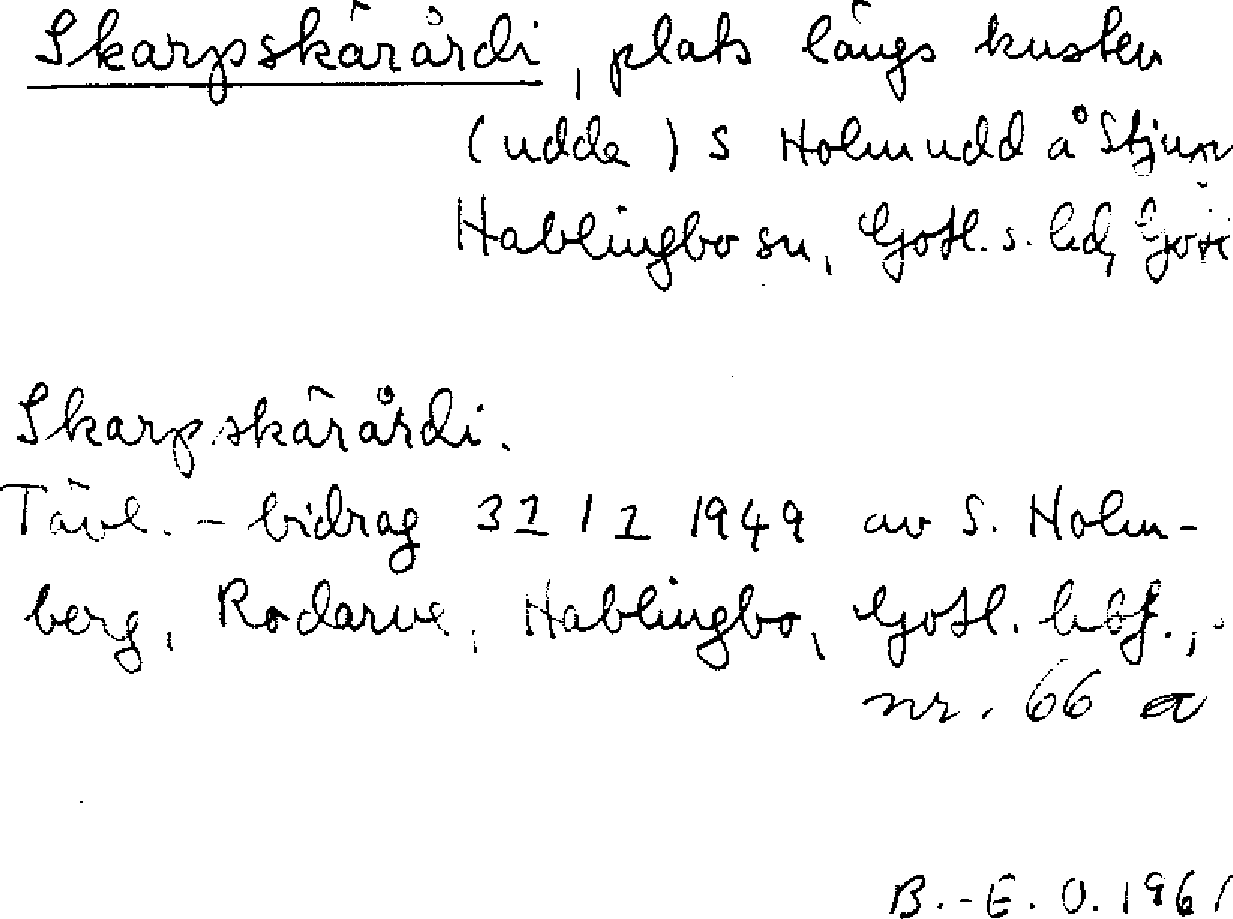 Skarpskärårdi, plats längs kusten
(udde) S Holmudd å Stjun
Hablingbo sn, Gotl. s. hd, Gotl
Skarpskärårdi.
Tävl.-bidrag 31 / 1 1949 av S. Holm-
berg, Rodarve, Hablingbo, Gotl. hbf.,
nr. 66 a
B.-E. O. 1961